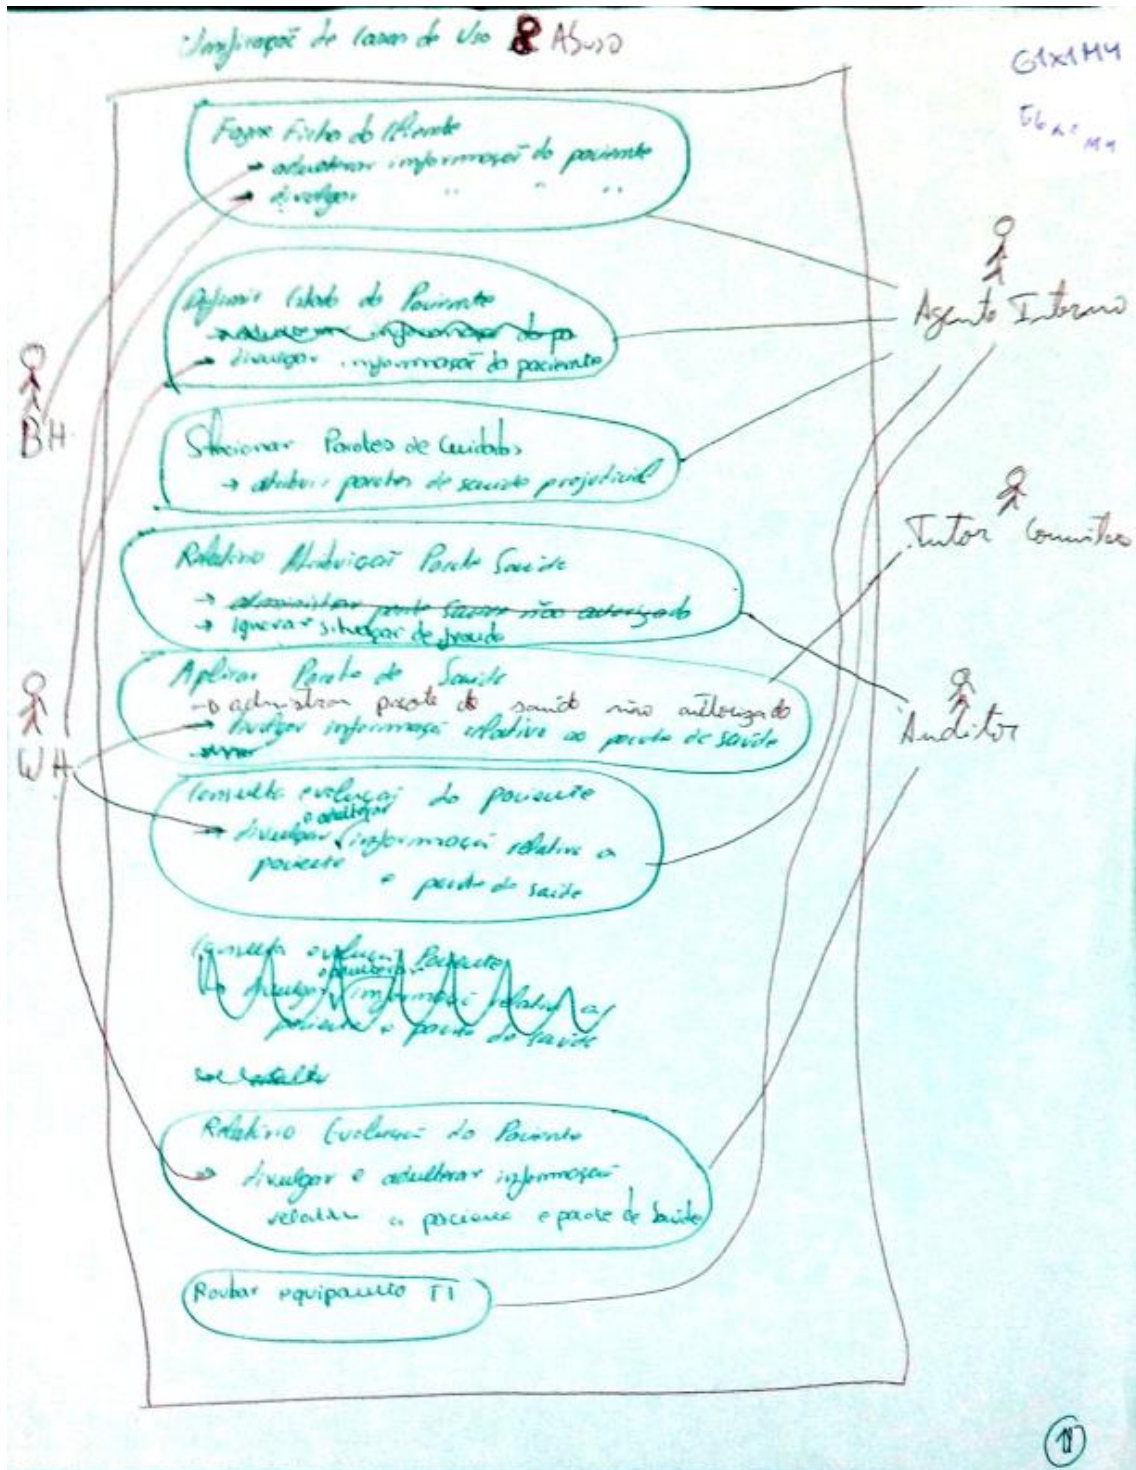 de Casos de Uso & Abuso
G1x1M4
Ficha do Cliente
→ adulterar informação do paciente
→ divulgar " " "
Definir Estado do Paciente
→ divulgar informação do paciente
Agente Interno
BH
Pacotes de Cuidados
→ atribuir pacotes de saúde prejudicial
Tutor
Relatório Atribuição Pacote Saúde
→ administrar pacote saúde não autorizado
→ Ignorar situação de fraude
Aplicar Pacote de Saúde
→ administrar pacote de saúde não autorizado
→ divulgar informação relativa ao pacote de saúde
Auditor
WH
Consulta evolução do paciente
e adulterar
→ divulgar informação relativa a
paciente e pacote de saúde
Consulta evolução Paciente
divulgar informação relativa a
paciente e pacote de saúde
Relatório Evolução do Paciente
→ divulgar e adulterar informação
relativa a paciente e pacote de Saúde
Roubar equipamento TI
11